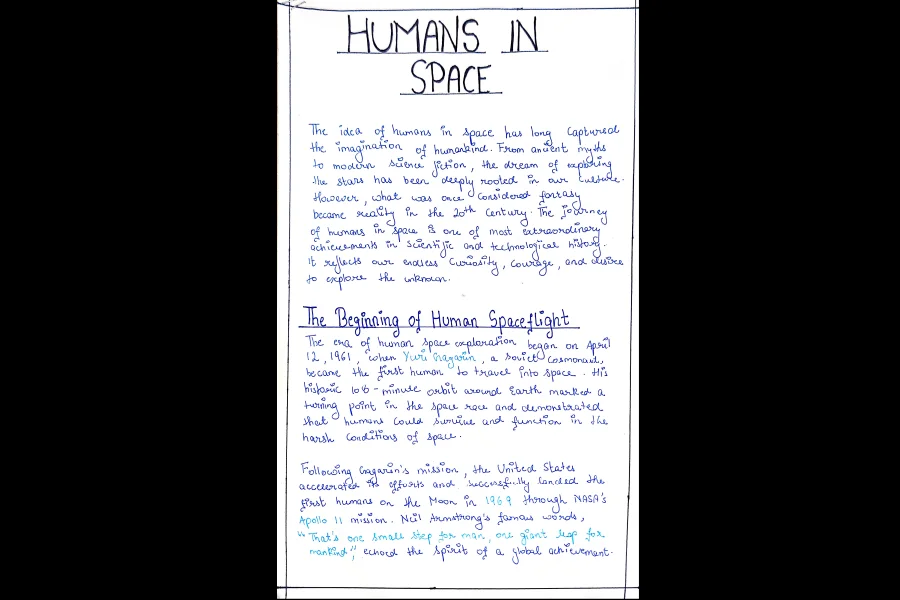 HUMANS IN
SPACE
The idea of humans in space has long captured
the imagination of humankind. From ancient myths
to modern science fiction, the dream of exploring
the stars has been deeply rooted in our culture.
However, what was once considered fantasy
became reality in the 20th century. The journey
of humans in space is one of most extraordinary
achievements in scientific and technological history.
It reflects our endless curiosity, courage, and desire
to explore the unknown.
The Beginning of Human Spaceflight
The era of human space exploration began on April
12, 1961, when Yuri Gagarin, a soviet Cosmonaut,
became the first human to travel into space. His
historic 108-minute orbit around Earth marked a
turning point in the space race and demonstrated
that humans could survive and function in the
harsh conditions of space.
Following Gagarin's mission, the United States
accelerated its efforts and successfully landed the
first humans on the Moon in 1969 through NASA's
Apollo 11 mission. Neil Armstrong's famous words,
"That's one small step for man, one giant leap for
mankind," echoed the spirit of a global achievement.